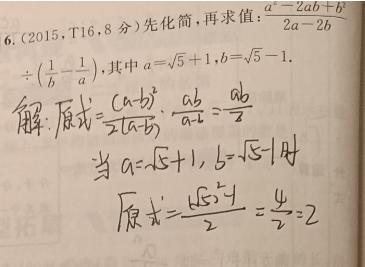 6.(2015,T16,8 分)先化简,再求值:(a²-2ab+b²)/(2a-2b)
÷(1/b-1/a),其中 a=√5+1,b=√5-1.
解:原式=(a-b)²/2(a-b)·ab/(a-b)=ab/2
当 a=√5+1, b=√5-1时
原式=((√5)²-1)/2=4/2=2